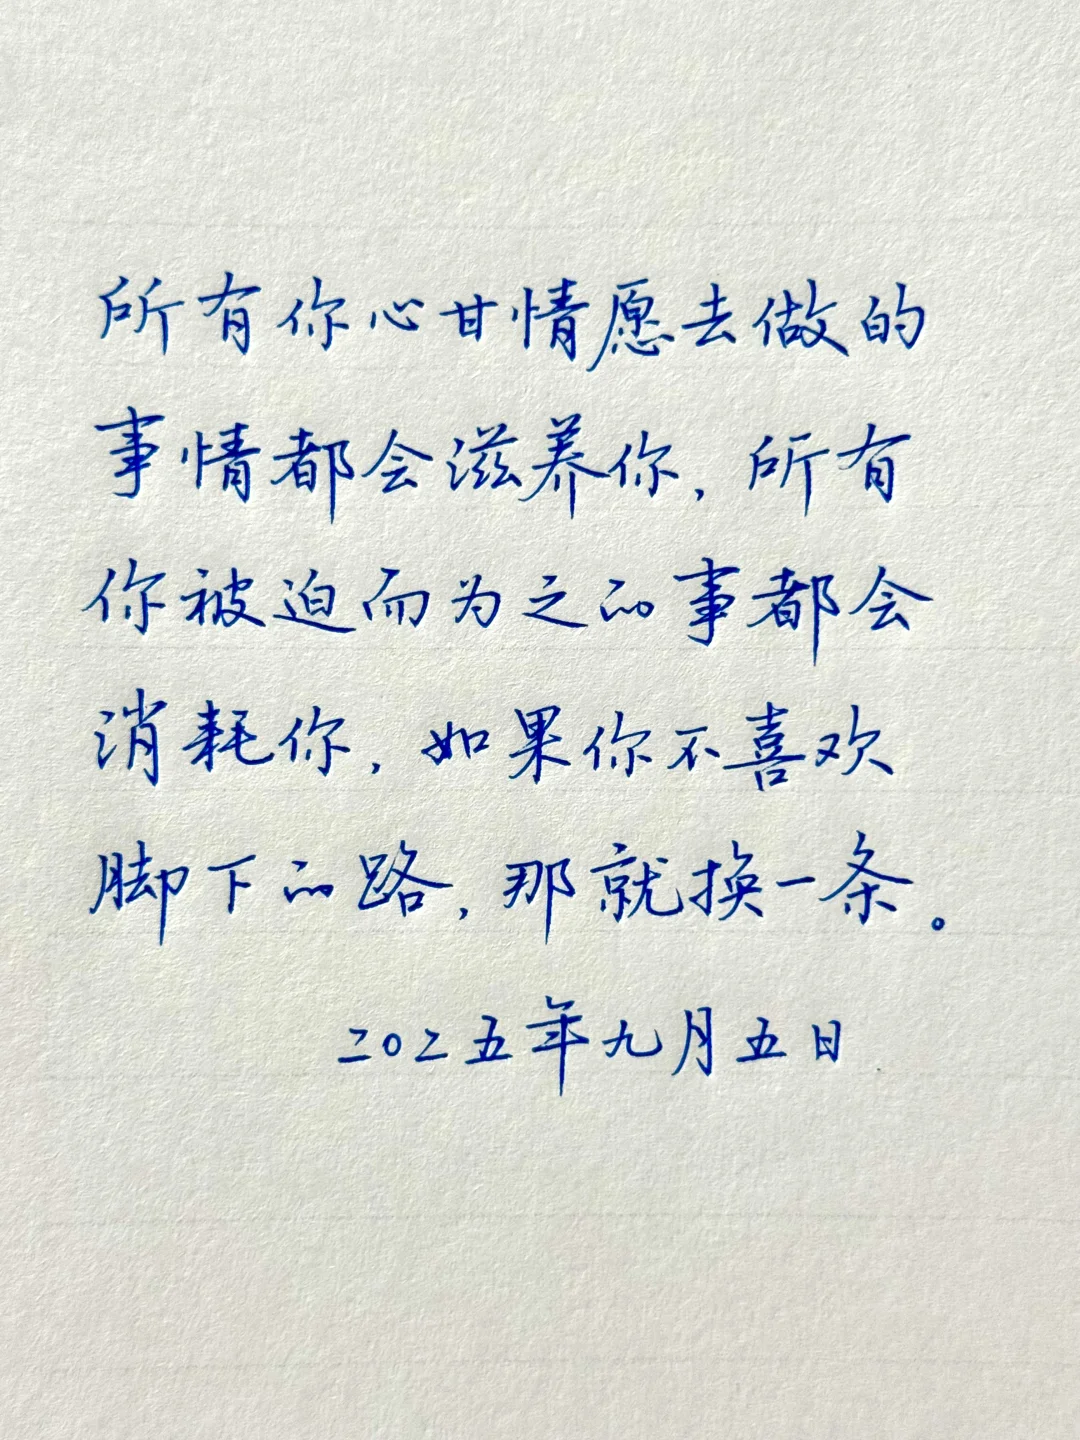 所有你心甘情愿去做的
事情都会滋养你，所有
你被迫而为之的事都会
消耗你，如果你不喜欢
脚下的路，那就换一条。
二〇二五年九月五日